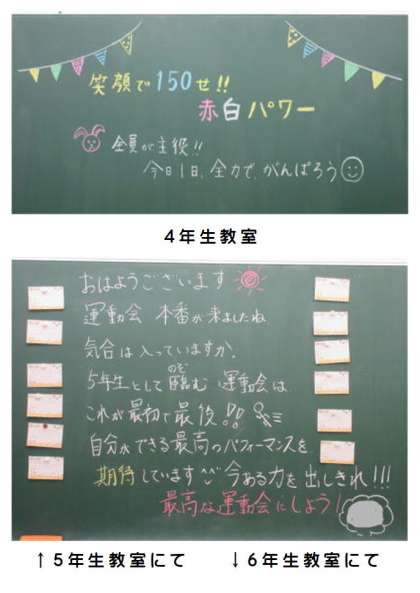 笑顔で150せ!!
赤白パワー
全員が主役!!
今日1日、全力で、がんばろう
4年生教室
おはようございます
運動会 本番が来ましたね
気合は入っていますか。
5年生として臨(のぞ)む 運動会は
これが最初で最後!!
自分ができる最高のパフォーマンスを
期待しています 今ある力を出しきれ!!!
最高な運動会にしよう!
↑5年生教室にて ↓6年生教室にて